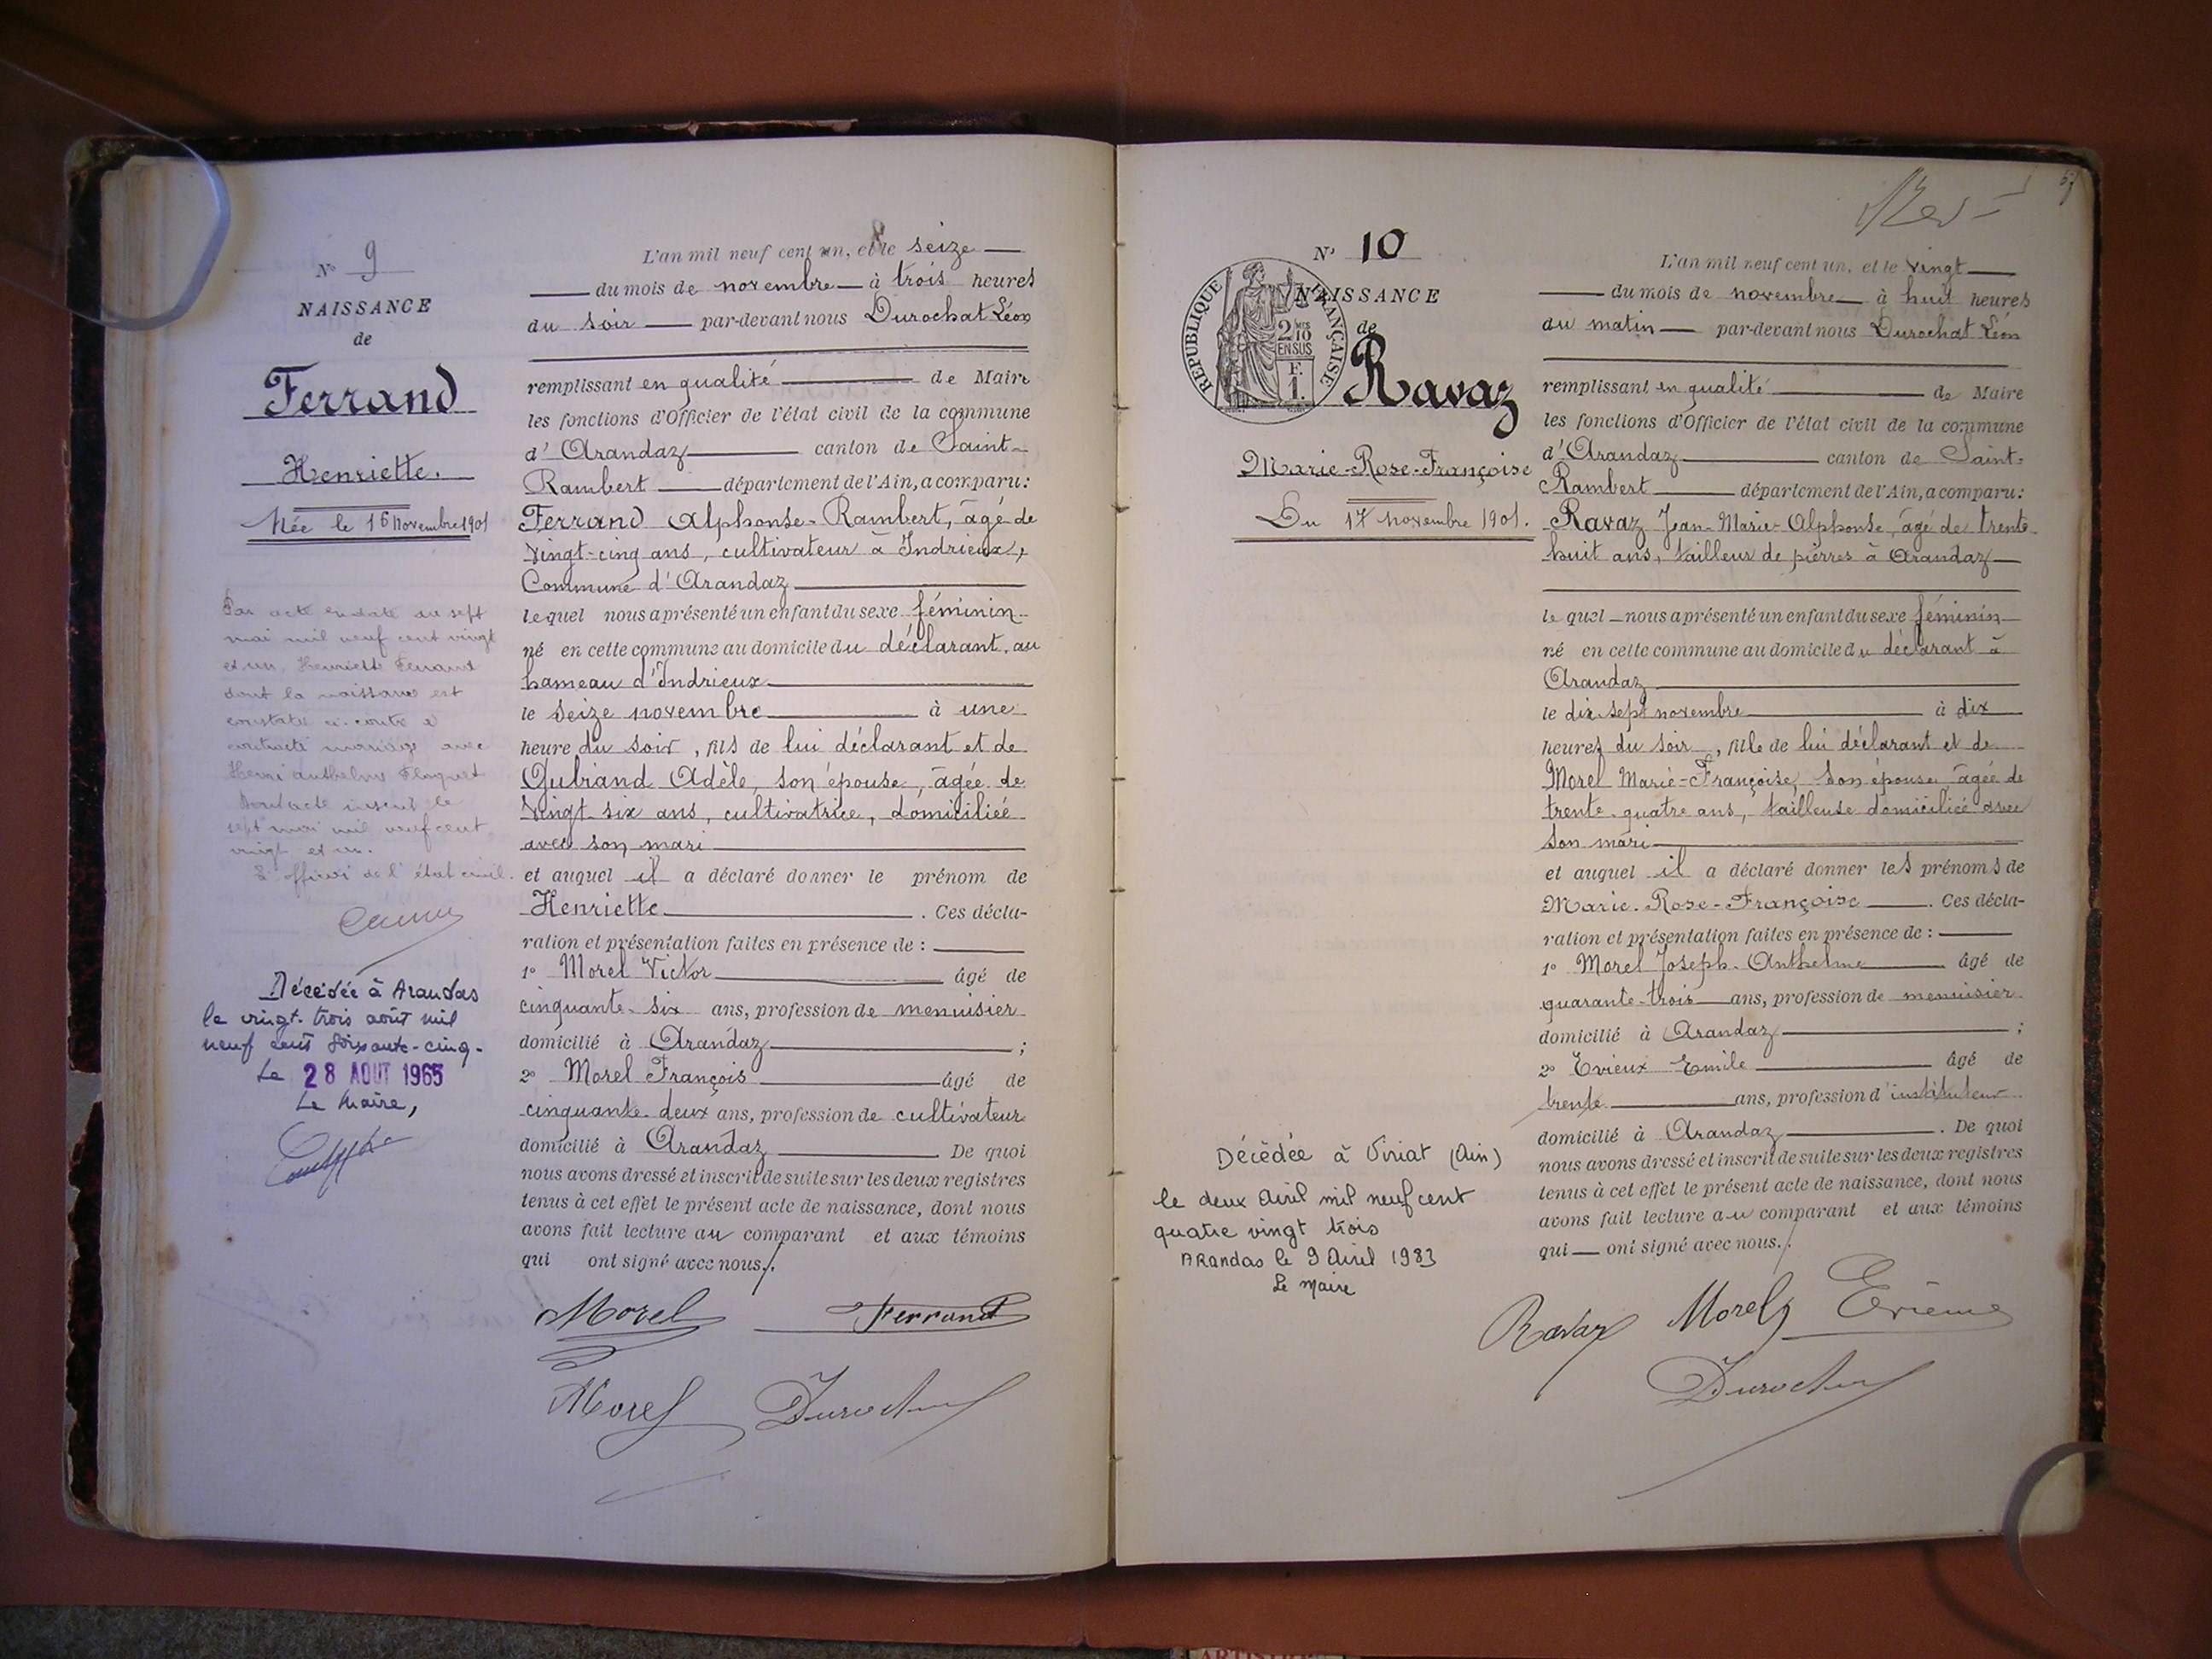 N° 9
NAISSANCE
de
Ferrand
Henriette.
Née le 16 novembre 1901
Par acte en date du sept
mai mil neuf cent vingt
et un, Henriette Ferrand
dont la naissance est
constatée ci-contre a
contracté mariage avec
Henri Anthelme
sept mai mil neuf cent
vingt et un.
L'officier de l'état civil.
Décédée à Arandas
le vingt-trois août mil
neuf cent soixante-cinq.
Le 28 AOUT 1965
Le Maire,
L'an mil neuf cent un, et le seize
du mois de novembre à trois heures
du soir par-devant nous Durochat Léon
remplissant en qualité de Maire
les fonctions d'Officier de l'état civil de la commune
d'Arandaz canton de Saint-
Rambert département de l'Ain, a comparu:
Ferrand Alphonse-Rambert, âgé de
vingt-cinq ans, cultivateur à Indrieux,
Commune d'Arandaz
lequel nous a présenté un enfant du sexe féminin
né en cette commune au domicile du déclarant, au
hameau d'Indrieux
le seize novembre à une
heure du soir, fils de lui déclarant et de
Gubiand Adèle, son épouse, âgée de
vingt-six ans, cultivatrice, domiciliée
avec son mari
et auquel il a déclaré donner le prénom de
Henriette. Ces décla-
ration et présentation faites en présence de :
1° Morel Victor âgé de
cinquante-six ans, profession de menuisier
domicilié à Arandaz ;
2° Morel François âgé de
cinquante-deux ans, profession de cultivateur
domicilié à Arandaz. De quoi
nous avons dressé et inscrit de suite sur les deux registres
tenus à cet effet le présent acte de naissance, dont nous
avons fait lecture au comparant et aux témoins
qui ont signé avec nous./.
Morel Ferrand
Morel Durochat
57
N° 10
RÉPUBLIQUE FRANÇAISE
2 MES 10 EN SUS
F. 1.
NAISSANCE
de
Ravaz
Marie-Rose-Françoise
Du 17 novembre 1901.
Décédée à Viriat (Ain)
le deux Avril mil neuf cent
quatre vingt trois
ARandas le 9 Avril 1983
Le Maire
L'an mil neuf cent un, et le vingt
du mois de novembre à huit heures
du matin par-devant nous Durochat Léon
remplissant en qualité de Maire
les fonctions d'Officier de l'état civil de la commune
d'Arandaz canton de Saint-
Rambert département de l'Ain, a comparu:
Ravaz Jean-Marie-Alphonse, âgé de trente-
huit ans, tailleur de pierres à Arandaz
lequel nous a présenté un enfant du sexe féminin
né en cette commune au domicile du déclarant à
Arandaz
le dix-sept novembre à dix
heures du soir, fille de lui déclarant et de
Morel Marie-Françoise, son épouse, âgée de
trente-quatre ans, tailleuse domiciliée avec
son mari
et auquel il a déclaré donner les prénoms de
Marie-Rose-Françoise. Ces décla-
ration et présentation faites en présence de :
1° Morel Joseph-Anthelme âgé de
quarante-trois ans, profession de menuisier
domicilié à Arandaz ;
2° Evieux Emile âgé de
trente ans, profession d'instituteur
domicilié à Arandaz. De quoi
nous avons dressé et inscrit de suite sur les deux registres
tenus à cet effet le présent acte de naissance, dont nous
avons fait lecture au comparant et aux témoins
qui ont signé avec nous./.
Ravaz Morel Evieux
Durochat